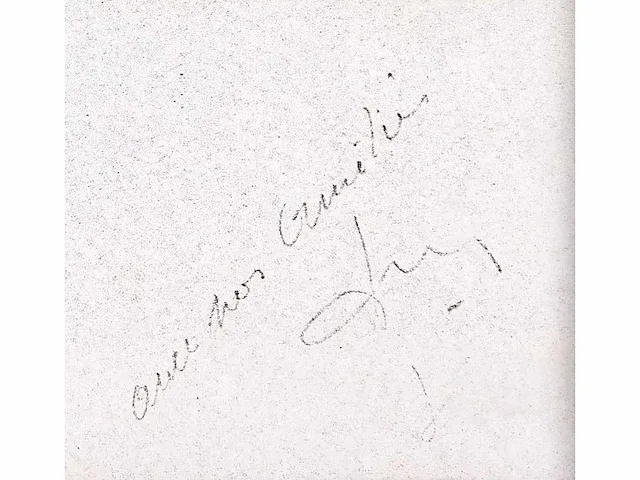 avec nos amitiés